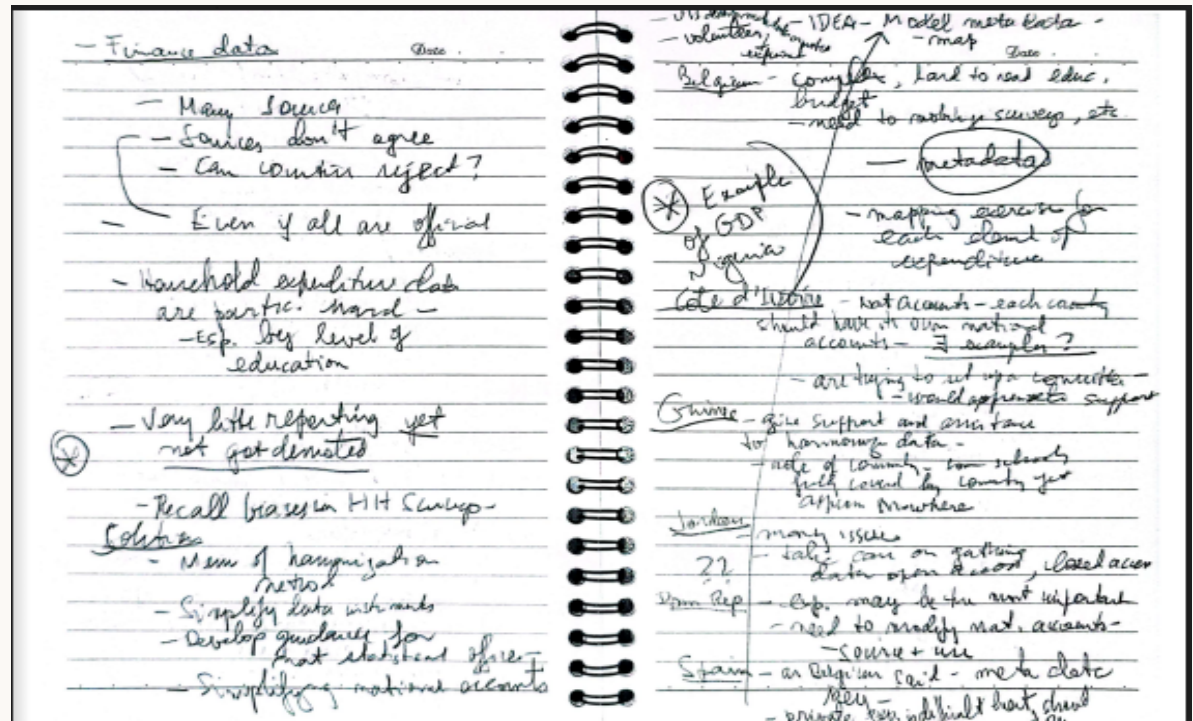 - Finance data
Date
- Many sources
- Sources don't agree
- Can countries reject?
- Even if all are official
- Household expenditure data
are partic. hard -
- Esp. by level of
education
- Very little reporting yet
not got demoted
- Recall biases in HH Surveys -
Solutions
- Menu of harmonization
method
- Simplify data instruments
- Develop guidance for
nat statistical offices -
- Simplifying national accounts
- IDEA - Model metadata -
- volunteer,
- map
Date
Belgium - complex, hard to read educ.
budget
- need to mobilize surveys, etc
- metadata
Example
of GDP
Nigeria
- mapping exercise for
each element of
expenditure
Cote d'Ivoire - Nat accounts - each country
should have its own national
accounts - ∃ examples?
- are trying to set up a committee -
- would appreciate support
Guinee - give support and assistance
to harmonize data -
- role of community - schools
fully covered by community yet
appear nowhere
Jordan - many issues
- take care on gathering
??
data open access, closed access
Dom Rep - exp. may be the most important
- need to modify nat. accounts -
- source + use
Spain - as Belgium said - meta data
key -
- private